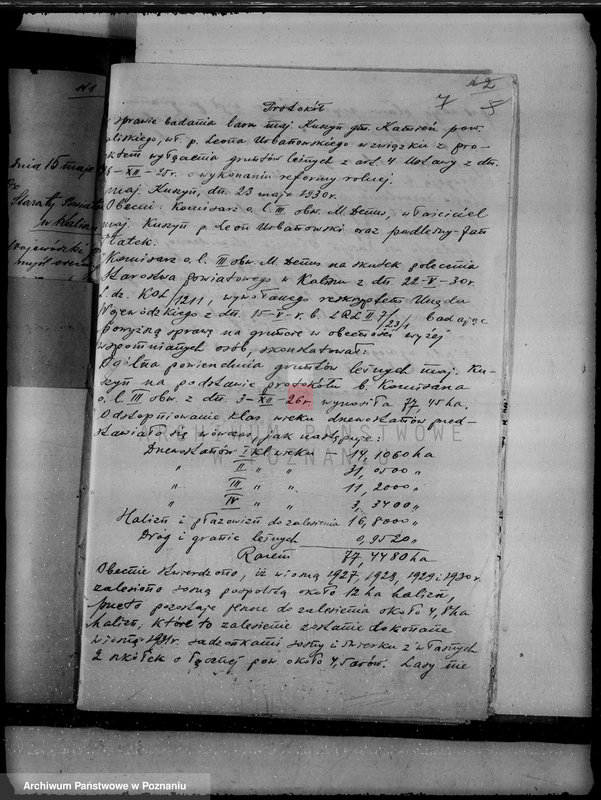 No 2
7 8
No 1
Protokół
w sprawie badania lasu maj. Kuszyn gm. Kamień pow.
Kaliskiego, wł. p. Leona Urbanowskiego w związku z pro-
jektem wyłączenia gruntów leśnych z art. 4 Ustawy z dn.
28-XII-25r. o wykonaniu reformy rolnej.
maj. Kuszyn, dn. 23 maja 1930r.
Obecni: Komisarz o. l. III obw. M. Denus, właściciel
maj. Kuszyn p. Leon Urbanowski oraz podleśny Jan
Płatek.
Komisarz o. l. III obw. M. Denus na skutek polecenia
Starostwa powiatowego w Kaliszu z dn. 22-V-30r.
L. dz. KOL/1211, wywołanego reskryptem Urzędu
Wojewódzkiego z dn. 15-V-r. b. L RL II 7/23/1 badając
powyższą sprawę na gruncie w obecności wyżej
wspomnianych osób, skonstatował:
Ogólna powierzchnia gruntów leśnych maj. Ku-
szyn na podstawie protokółu b. Komisarza
o. l. III obw. z dn. 3-XII-26r wynosiła 77,45 ha.
Odstopniowanie klas wieku drzewostanów przed-
stawiało się wówczas, jak następuje:
Drzewostanów I kl wieku - 14,1060 ha
" II " " 31,0500 "
" III " " 11,2000 "
" IV " " 3,3400 "
Halizn i płazowizn do zalesienia 16,8000 "
Dróg i granic leśnych 0,9520 "
Razem 77,4480 ha
Obecnie stwierdzono, iż wiosną 1927, 1928, 1929 i 1930r.
zalesiono sosną pospolitą około 12 ha halizn,
przeto pozostaje jeszcze do zalesienia około 4,8 ha
halizn, które to zalesienie zostanie dokonane
wiosną 1931r. sadzonkami sosny i świerku z własnych
2 szkółek o łącznej pow. około 4,5 arów. Lasy nie
dnia 15 maja
Starosty Powiatow
w Kaliszu
ARCHIWUM PAŃSTWOWE
W POZNANIU
Archiwum Państwowe w Poznaniu